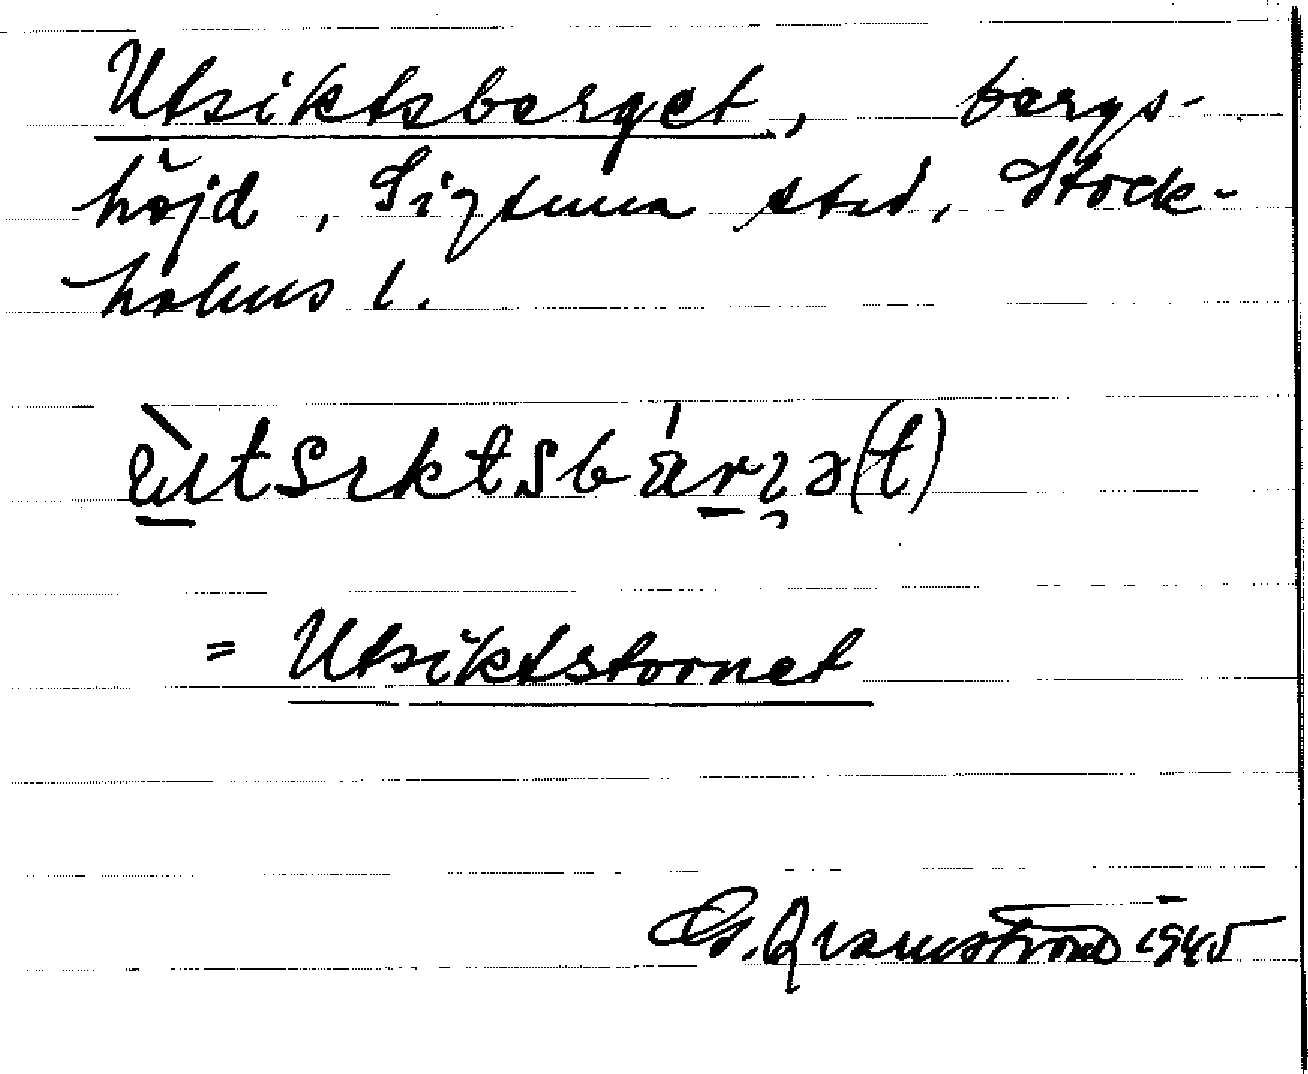 Utsiktsberget, bergs-
höjd, Sigtuna stad, Stock-
holms l.
ùtsɪktsbárɟə(t)
= Utsiktstornet
G. Qvarnström 1945